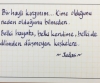 Bir hayli kırgınım... Kime olduğunu
neden olduğunu bilmeden.
Belki hayata, belki kendime, belki de
dilimden düşmeyen keşkelere.